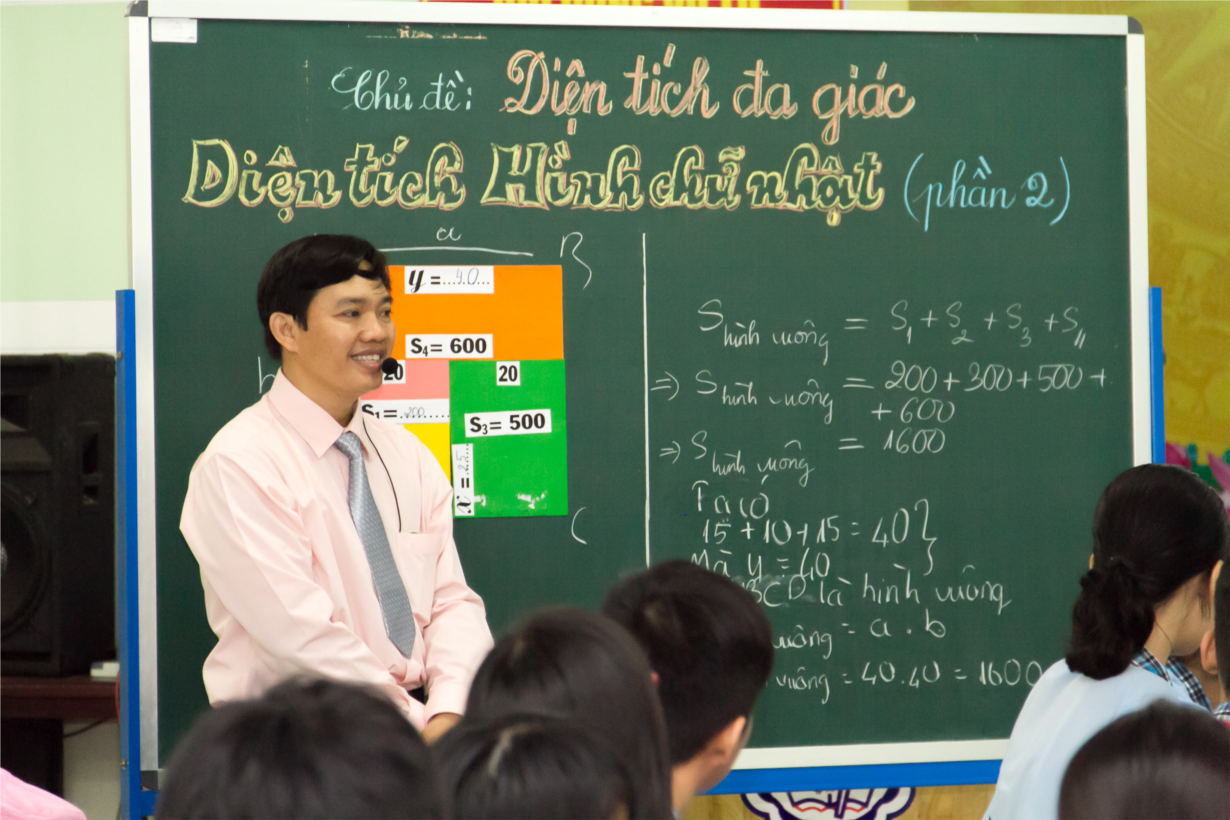 Chủ đề: Diện tích đa giác
Diện tích Hình chữ nhật (phần 2)
a
B
y =...40...
S4= 600
20
20
S1=...200......
S3= 500
x =...25...
C
S hình vuông = S1 + S2 + S3 + S4
=> S hình vuông = 200 + 300 + 500 +
+ 600
=> S hình vuông = 1600
Ta có
15 + 10 + 15 = 40 }
Mà y = 40
BCD là hình vuông
vuông = a . b
vuông = 40.40 = 1600